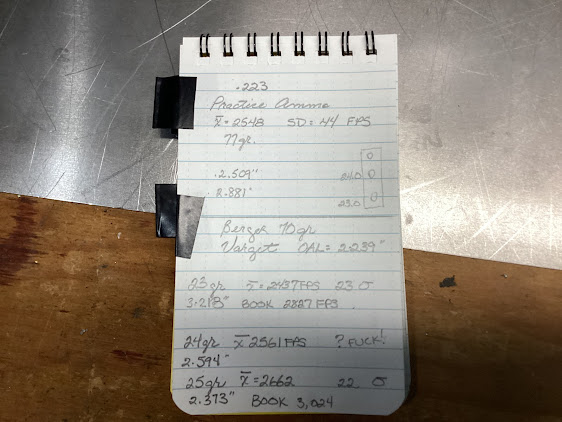 .223
Practice Ammo
x̄ = 2548 SD = 44 FPS
77gr.
.2.509"
24.0
0
0
2.881"
23.0
0
Berger 70gr
Varget OAL = 2.239"
23gr x̄ = 2437 FPS 23 σ
3.218" BOOK 2827 FPS.
24gr x̄ 2561 FPS ? FUCK!
2.594"
25gr x̄ = 2662 22 σ
2.373" BOOK 3,024